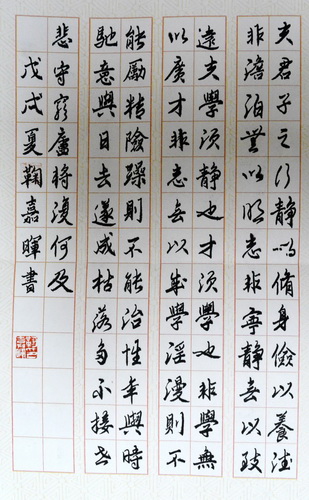 夫君子之行静以脩身儉以養德
非澹泊無以明志非寧静無以致
遠夫學須静也才須學也非學無
以廣才非志無以成學淫漫則不
能勵精險躁則不能治性年與時
馳意與日去遂成枯落多不接世
悲守窮廬將復何及
戊戌夏鞠嘉暉書